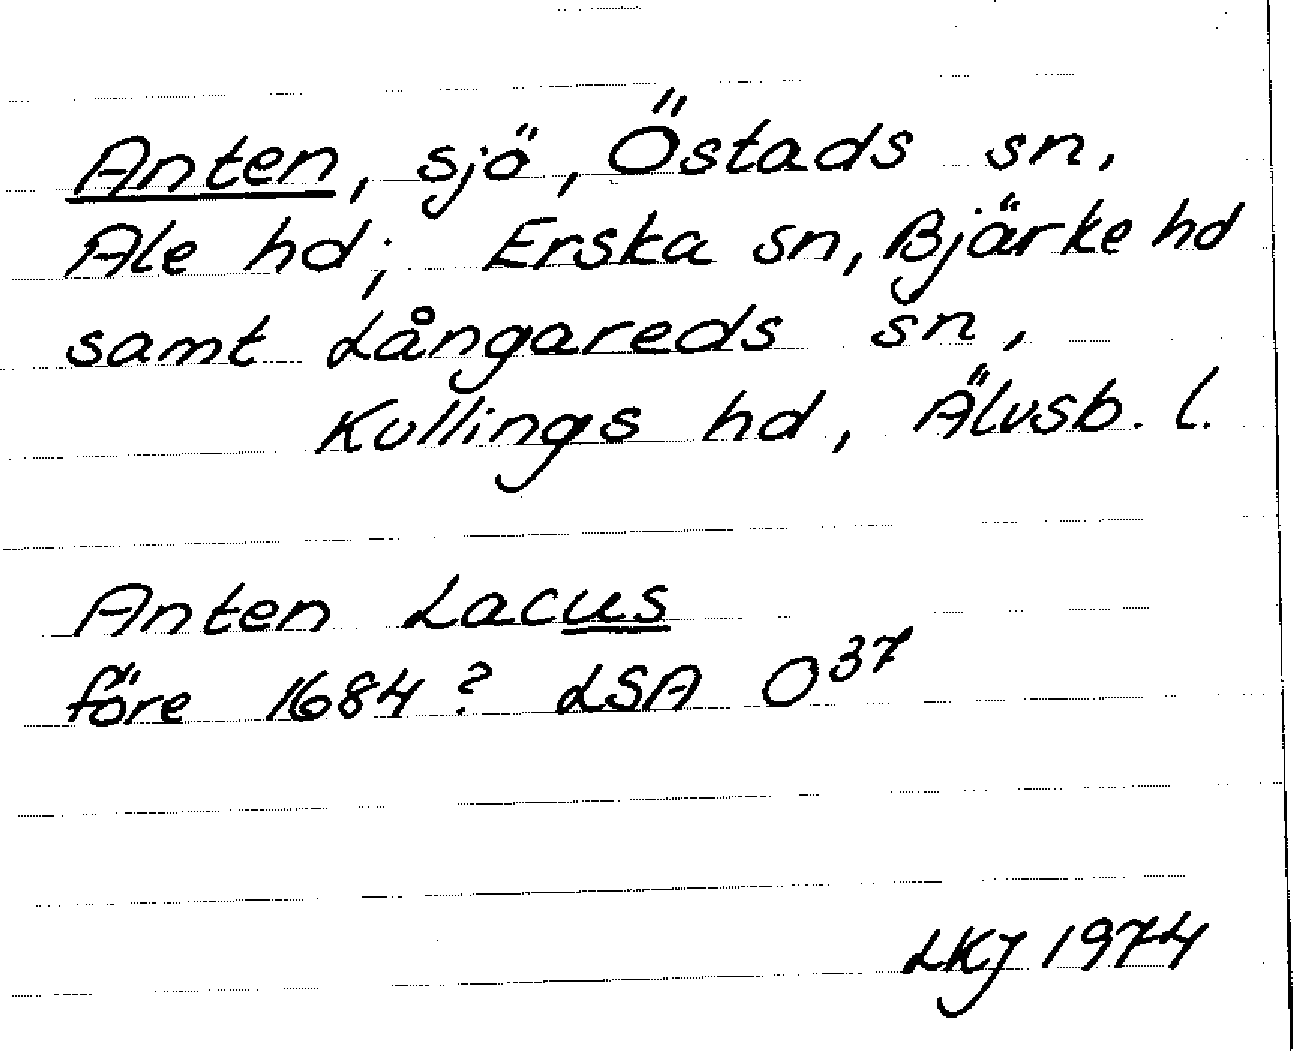 Anten, sjö, Östads sn,
Ale hd; Erska sn, Bjärke hd
samt Långareds sn,
Kullings hd, Älvsb. l.
Anten Lacus
före 1684? LSA O³⁷
LKJ 1974